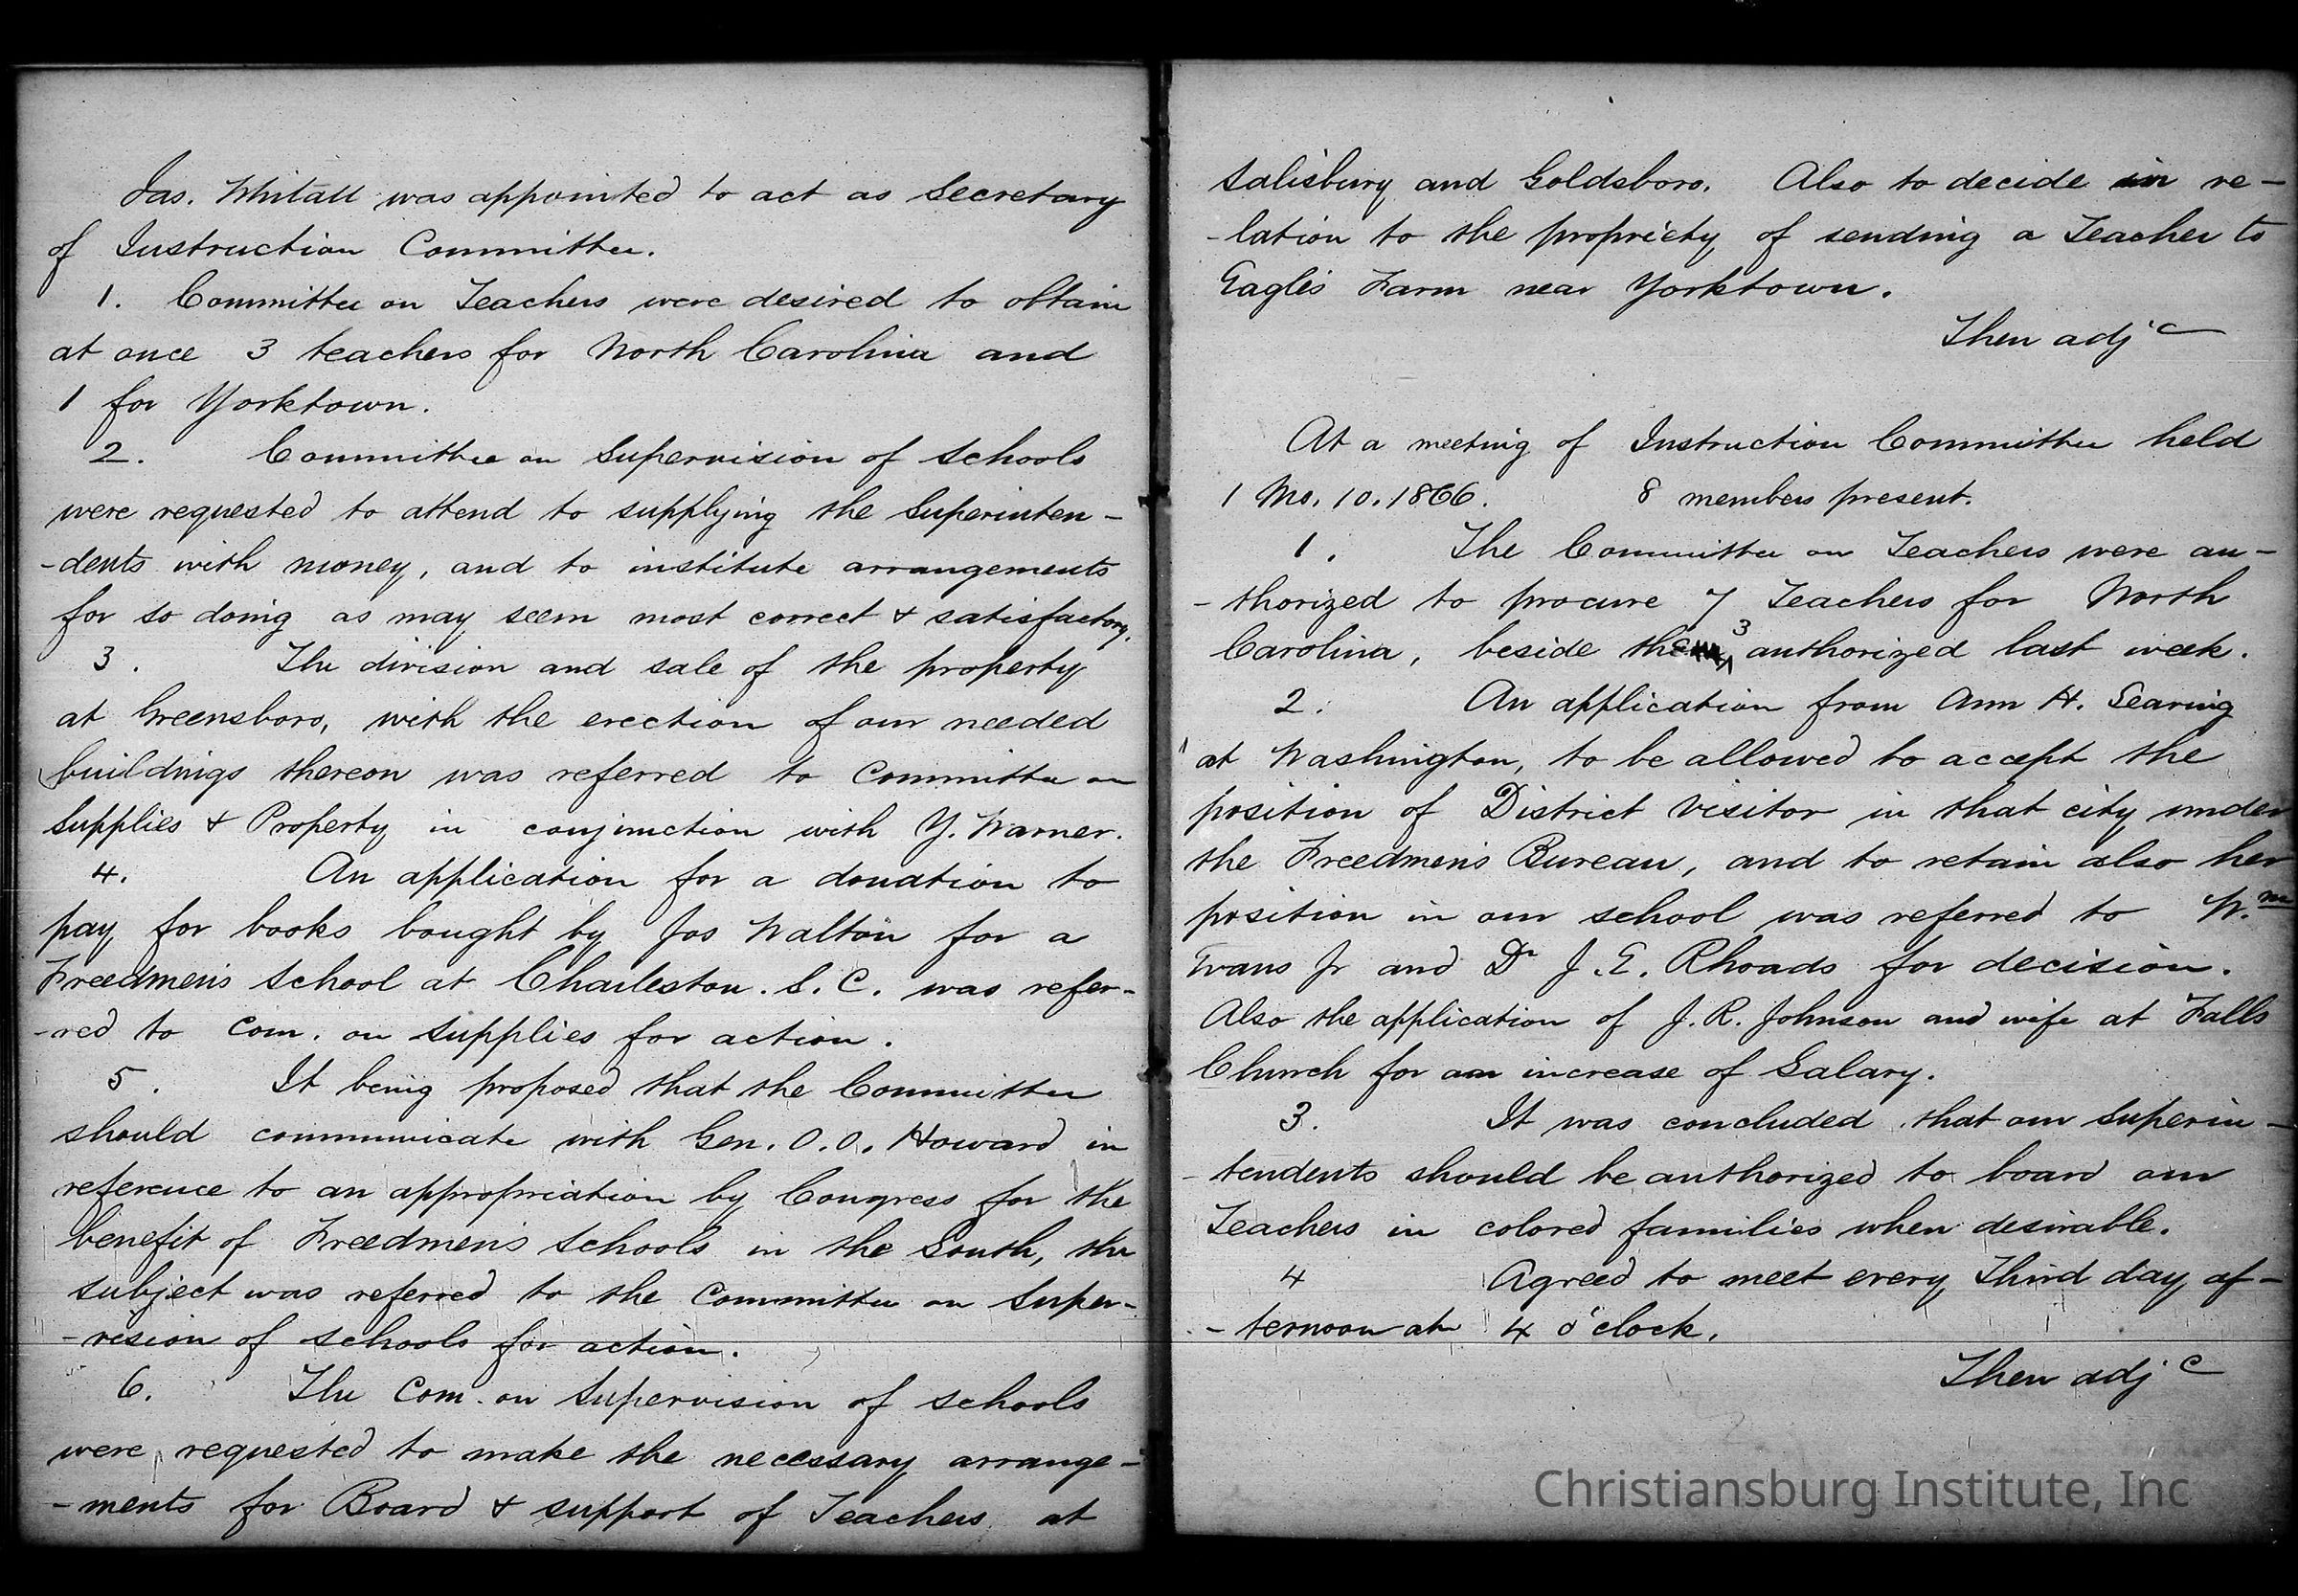 Jas. Whitall was appointed to act as Secretary
of Instruction Committee.
1. Committee on Teachers were desired to obtain
at once 3 teachers for North Carolina and
1 for Yorktown.
2. Committee on Supervision of Schools
were requested to attend to supplying the Superinten-
-dents with money, and to institute arrangements
for so doing as may seem most correct & satisfactory.
3. The division and sale of the property
at Greensboro, with the erection of our needed
buildings thereon was referred to Committee on
Supplies & Property in conjunction with Y. Warner.
4. An application for a donation to
pay for books bought by Jos Walton for a
Freedmen's School at Charleston. S. C. was refer-
-red to Com. on Supplies for action.
5. It being proposed that the Committee
should communicate with Gen. O. O. Howard in
reference to an appropriation by Congress for the
benefit of Freedmen's Schools in the South, the
subject was referred to the Committee on Super-
-vision of Schools for action.
6. The Com. on Supervision of Schools
were requested to make the necessary arrange-
-ments for Board & support of Teachers at
Salisbury and Goldsboro. Also to decide in re-
-lation to the propriety of sending a Teacher to
Eagle's Farm near Yorktown.
Then adjc
At a meeting of Instruction Committee held
1 Mo. 10. 1866. 8 members present.
1. The Committee on Teachers were au-
-thorized to procure 7 Teachers for North
Carolina, beside the 3 authorized last week.
2. An application from Ann H. Searing
at Washington, to be allowed to accept the
position of District Visitor in that city under
the Freedmen's Bureau, and to retain also her
position in our school was referred to Wm
Evans Jr and Dr J. E. Rhoads for decision.
Also the application of J. R. Johnson and wife at Falls
Church for an increase of Salary.
3. It was concluded that our Superin-
-tendents should be authorized to board our
Teachers in colored families when desirable.
4 Agreed to meet every Third day af-
-ternoon at 4 o'clock.
Then adjc
Christiansburg Institute, Inc